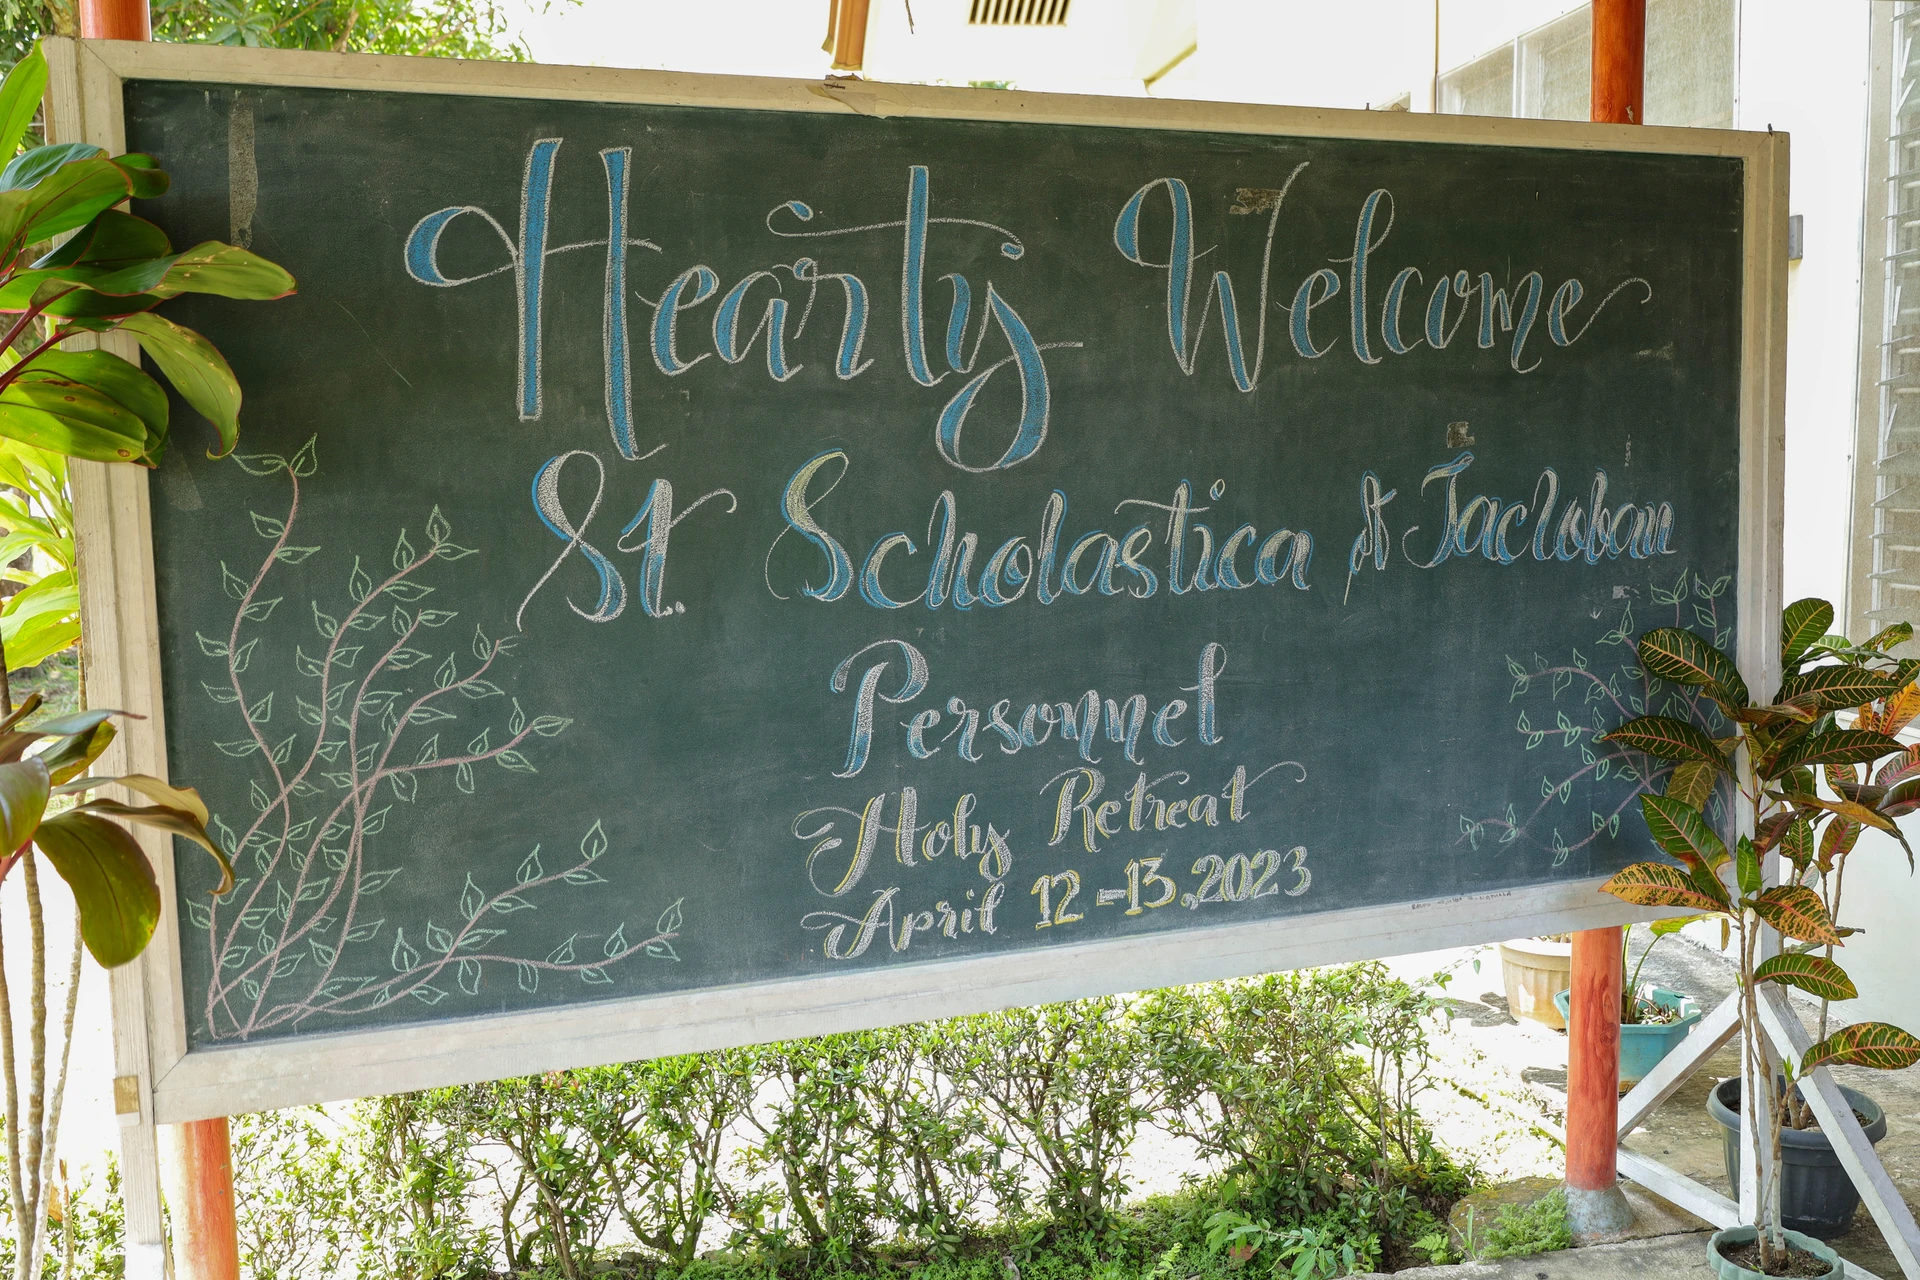 Hearty Welcome
St. Scholastica of Tacloban
Personnel
Holy Retreat
April 12-13, 2023